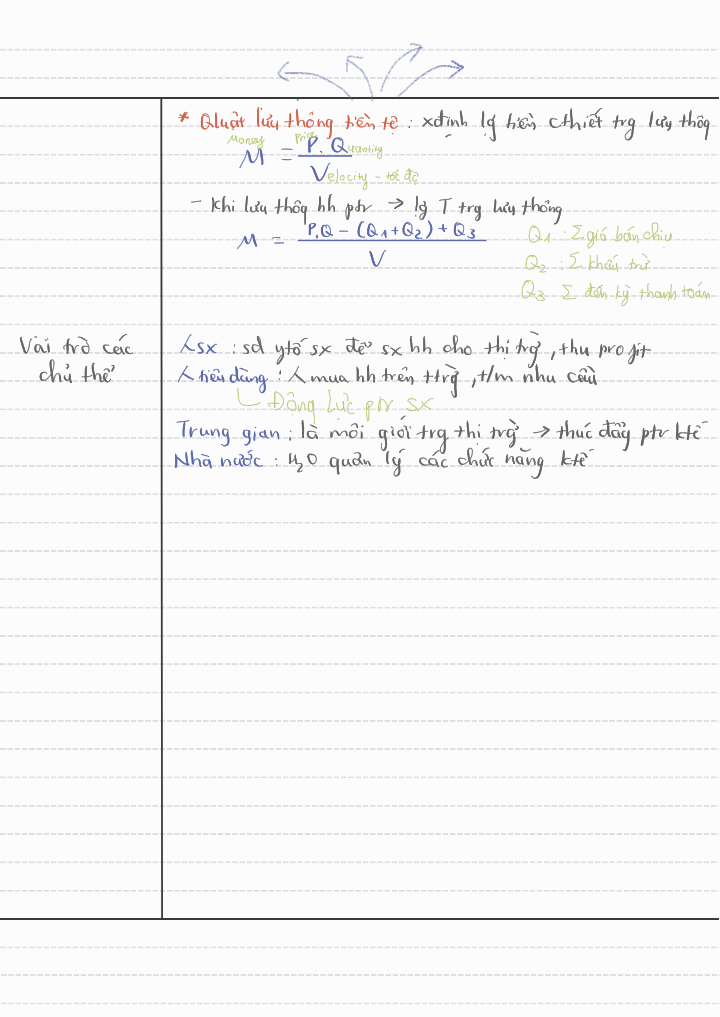 * Qluật lưu thông tiền tệ : xđịnh lg tiền cthiết trg lưu thôg
Money Price
M = P. Quantity
Velocity - tốc độ
- Khi lưu thôg hh ptr → lg T trg lưu thông
M = P.Q - (Q1+Q2) + Q3
V
Q1 : Σ giá bán chịu
Q2 : Σ khấu trừ
Q3 Σ đến kỳ thanh toán
Vai trò các
chủ thể
人 sx : sd ytố sx để sx hh cho thị trg̀ , thu profit
人 tiêu dùng : 人 mua hh trên ttrg̀ , t/m nhu cầu
Động lực ptr sx
Trung gian : là môi giới trg thị trg̀ → thúc đẩy ptr ktế
Nhà nước : H2O quản lý các chức năng ktế